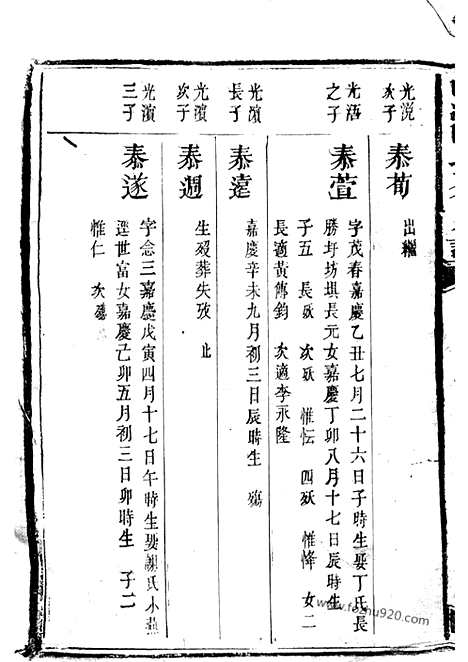 光說
次子
泰荀
出繼
光活
之子
泰萱
字茂春嘉慶乙丑七月二十六日子時生娶丁氏長
勝圩坊填長元女嘉慶丁卯八月十七日辰時生
子五 長殀 次殀 惟忶 四殀 惟㤢 女二
長適黃傳鈞 次適李永隆
光濱
長子
泰違
嘉慶辛未九月初三日辰時生 殤
光濱
次子
泰週
生殁葬失攷 止
光濱
三子
泰遂
字念三嘉慶戊寅四月十七日午時生娶謝氏小燕
逕世富女嘉慶己卯五月初三日卯時生 子二
惟仁 次殤
www.fozhu920.com